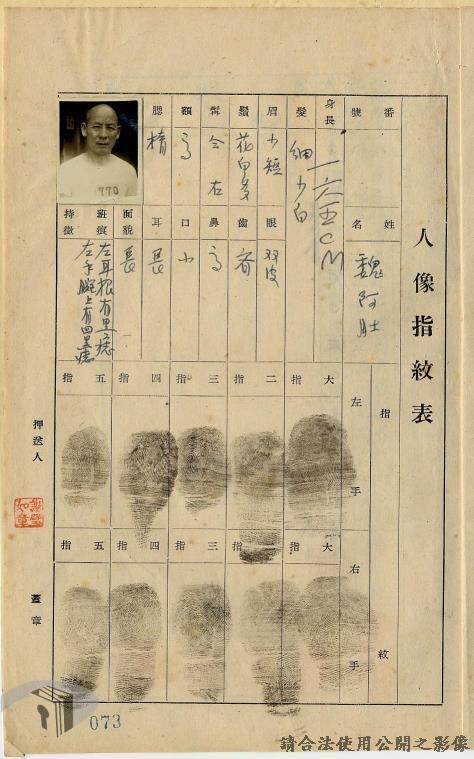 人像指紋表
番號
姓名 魏阿肚
身長 一六五CM
髮 細少白
眉 少短
眼 双皮
鬚 花白多
齒 齊
髯 全右
鼻 高
額 高
口 小
腮 楕
耳 長
面貌 長
班痕持徵 左耳根有黑痣
左手腕上有四黑痣
770
指紋
左手
大指 二指 三指 四指 五指
右手
大指 三指 四指 五指
押送人
蓋章
073
請合法使用公開之影像